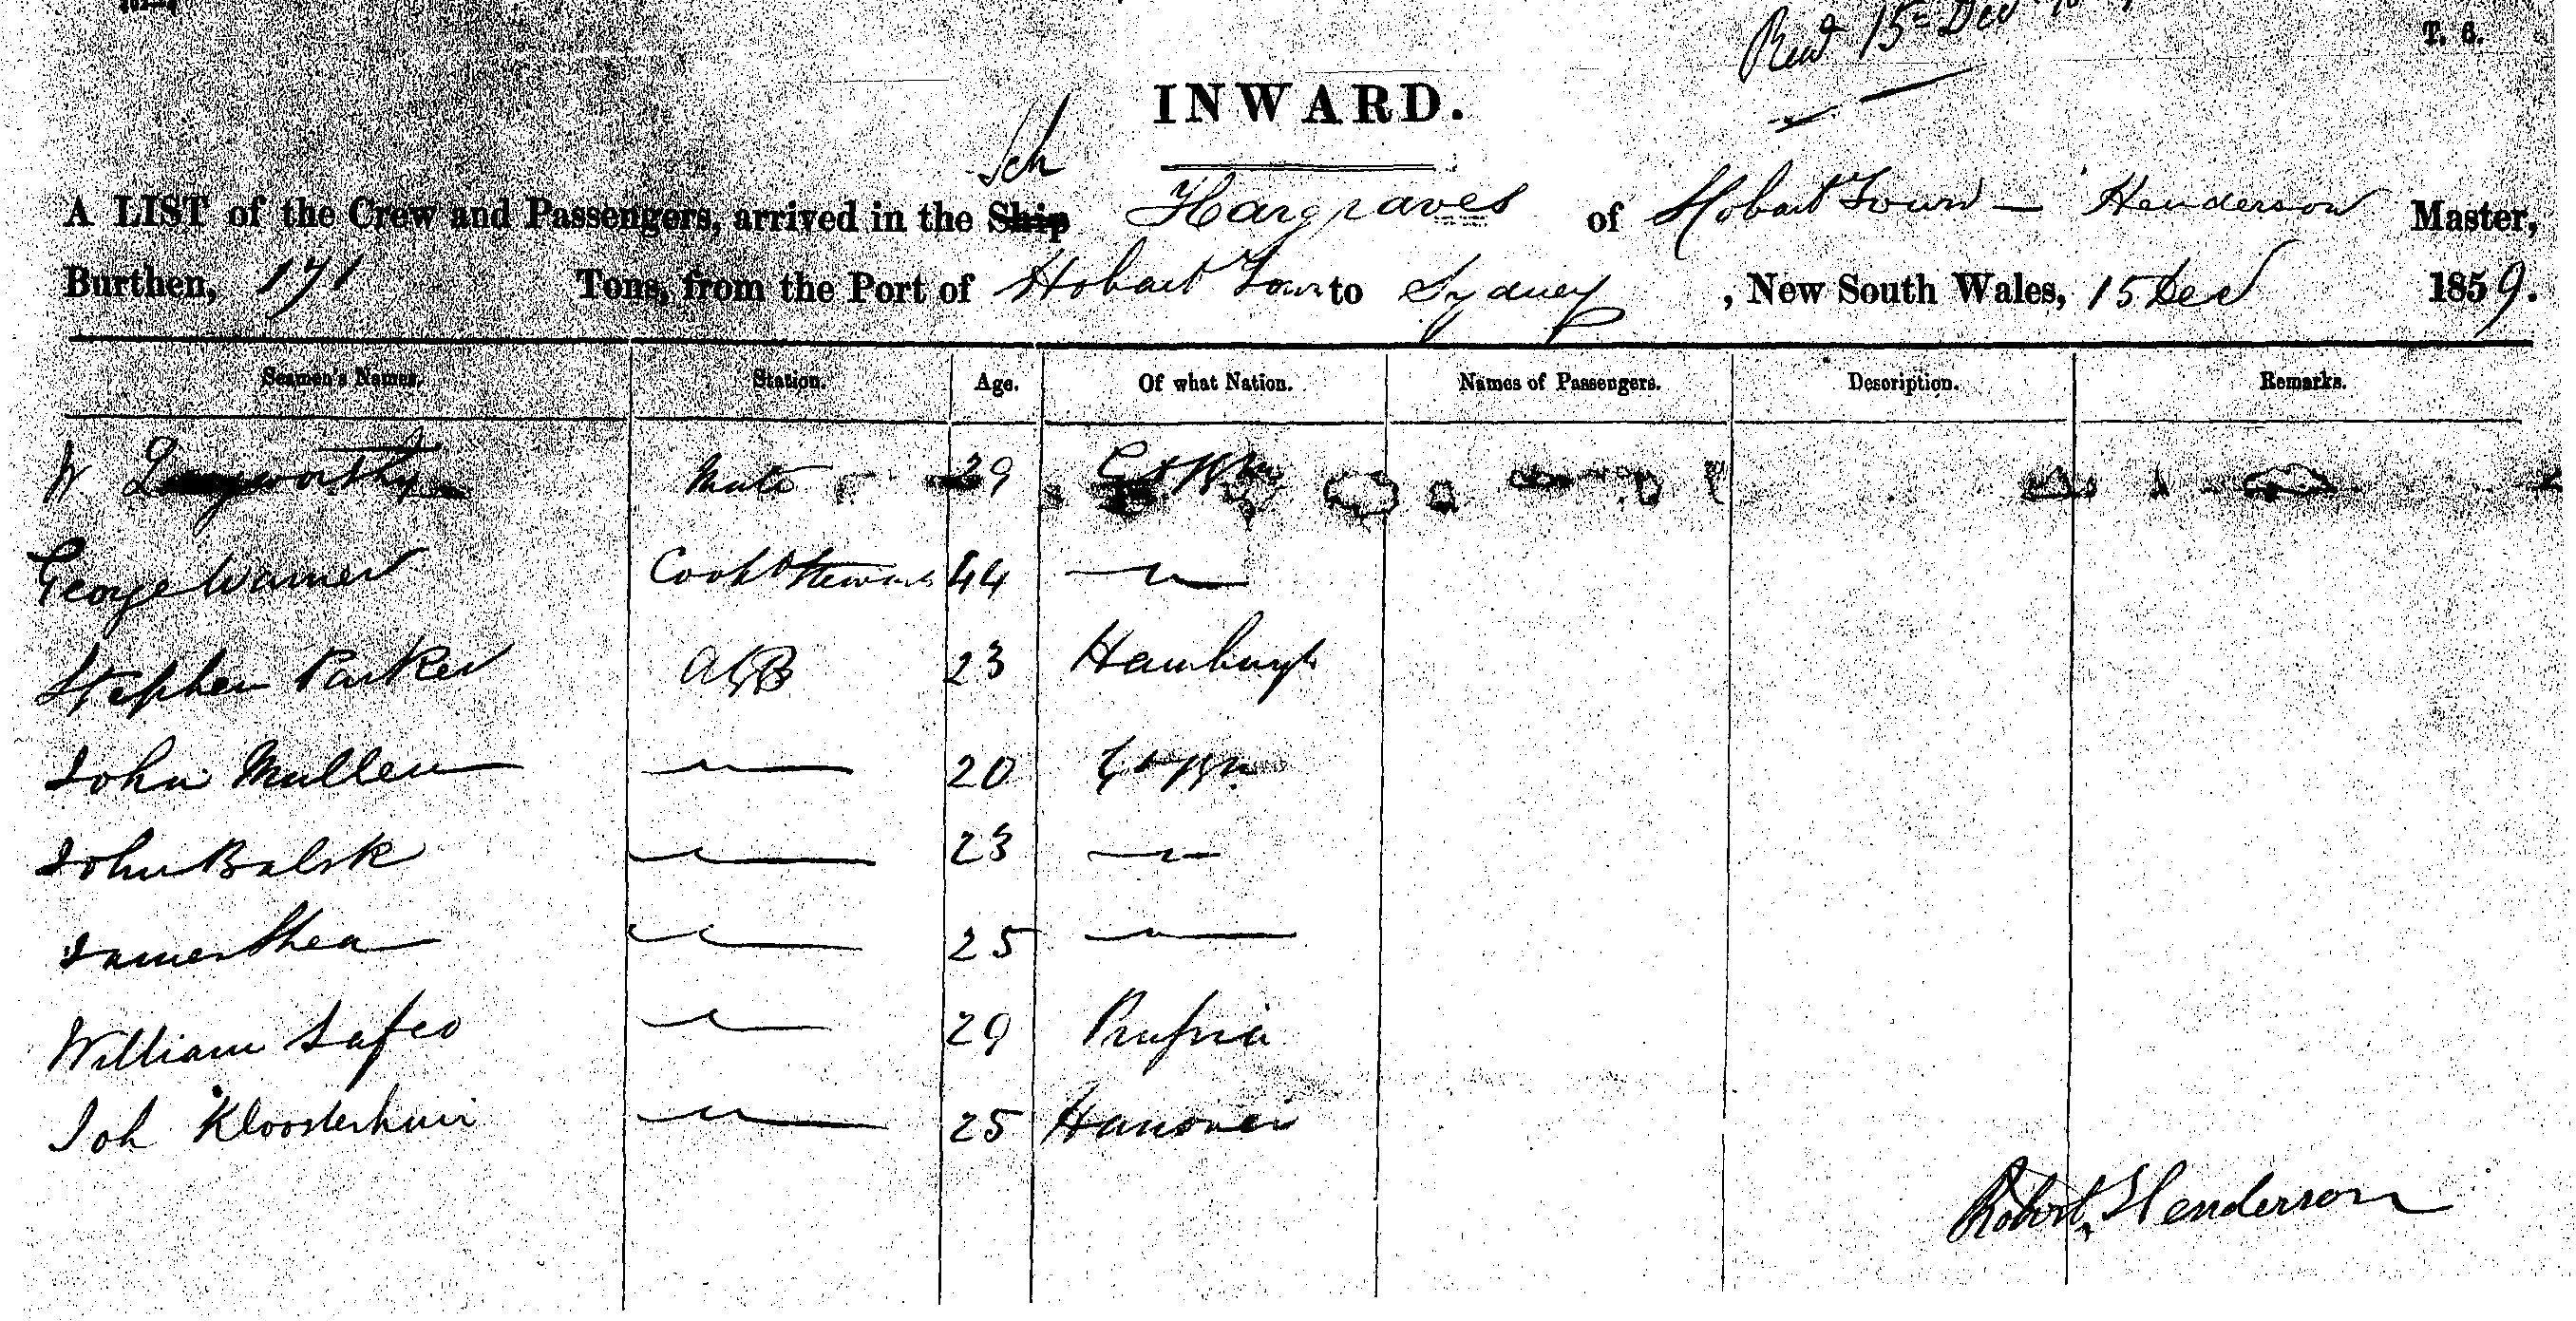 T. 6.
Recd 15 Dec
INWARD.
Sch
A LIST of the Crew and Passengers, arrived in the Ship Hargraves of Hobart Town — Henderson Master,
Burthen, 171 Tons, from the Port of Hobart Town to Sydney, New South Wales, 15 Dec 1859.
Seamen's Names. Station. Age. Of what Nation. Names of Passengers. Description. Remarks.
W Langworthy Mate 29
George Warner Cook & Steward 44 —"—
Stephen Parker AB 23 Hamburgh
John Mullen —"— 20
John —"— 23 —"—
James Shea —"— 25 —"—
William —"— 29 Prussia
Joh Kloosterhuis —"— 25 Hanover
Robert Henderson